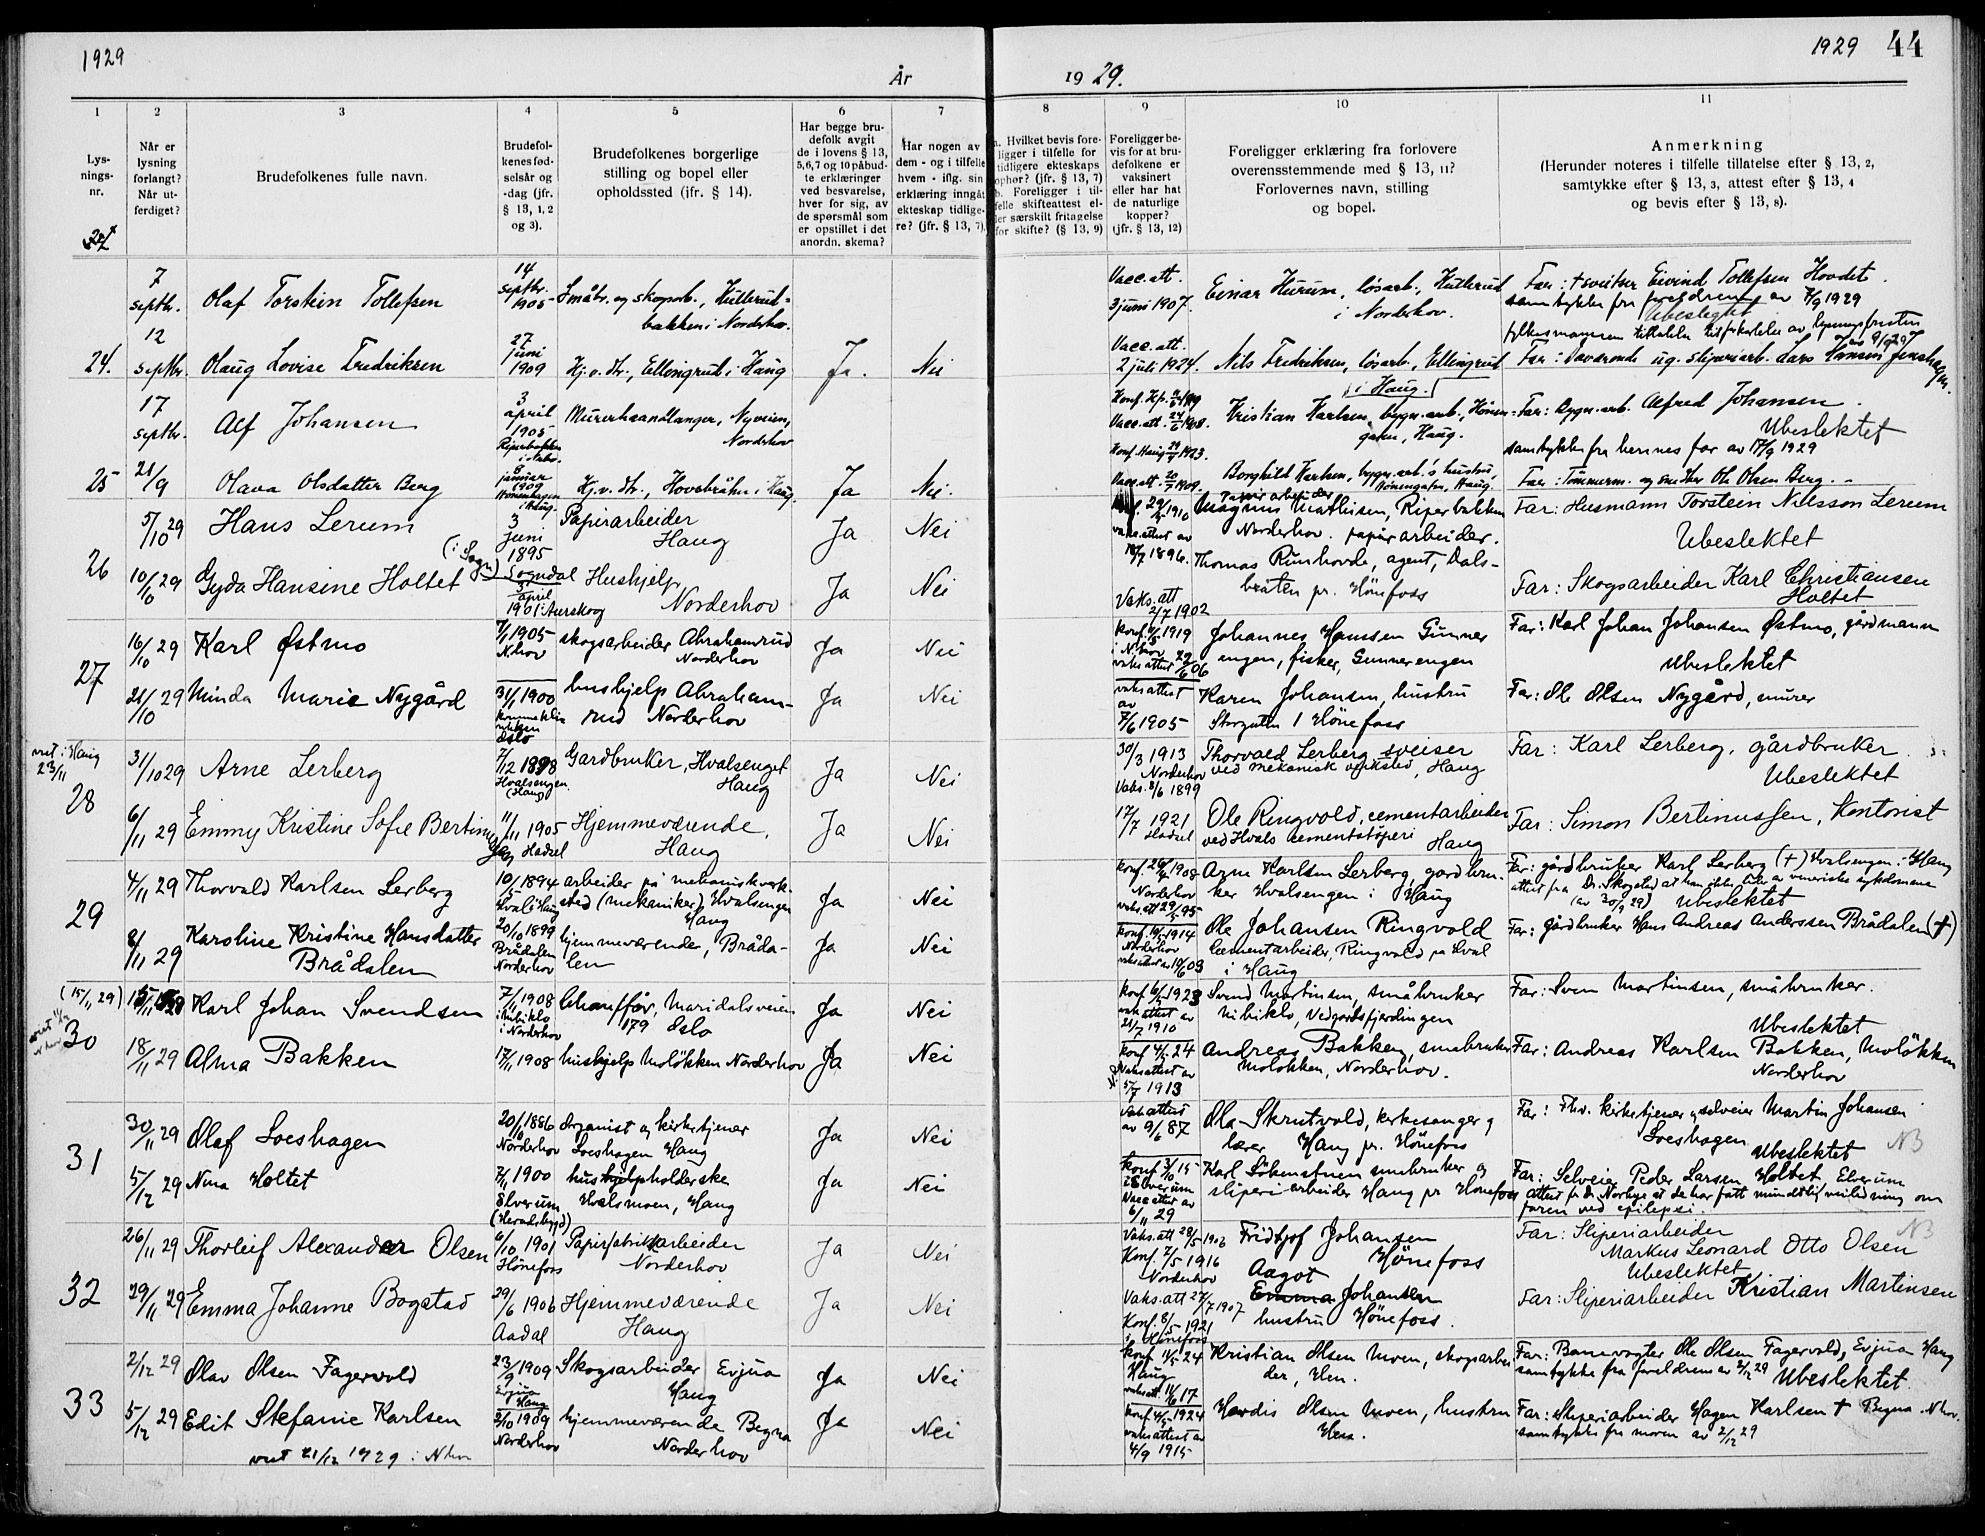 1929
År
19 29.
1929 44
1
2
3
4
5
6
7
8
9
10
11
Lys-
nings-
nr.
Når er
lysning
forlangt?
Når ut-
ferdiget?
Brudefolkenes fulle navn.
Brudefol-
kenes fød-
selsår og
-dag (jfr.
§ 13, 1, 2
og 3).
Brudefolkenes borgerlige
stilling og bopel eller
opholdssted (jfr. § 14).
Har begge bru-
defolk avgit
de i lovens § 13,
5,6,7 og 10 påbud-
te erklæringer
ved besvarelse,
hver for sig, av
de spørsmål som
er opstillet i det
anordn. skema?
Har nogen av
dem - og i tilfelle
hvem - iflg. sin
erklæring inngåt
ekteskap tidlige-
re? (jfr. § 13, 7).
a. Hvilket bevis fore-
ligger i tilfelle for
tidligere ekteskaps
ophør? (jfr. § 13, 7)
b. Foreligger i til-
felle skifteattest el-
ler særskilt fritagelse
for skifte? (§ 13, 9)
Foreligger be-
vis for at bru-
defolkene er
vaksinert
eller har hat
de naturlige
kopper?
(jfr. § 13, 12)
Foreligger erklæring fra forlovere
overensstemmende med § 13, 11?
Forlovernes navn, stilling
og bopel.
Anmerkning
(Herunder noteres i tilfelle tillatelse efter § 13, 2,
samtykke efter § 13, 3, attest efter § 13, 4
og bevis efter § 13, 8).
7 septbr.
Olaf Torstein Tollefsen
14 septbr. 1905
Småbr. og skogsarb., Hullerud-
bakken i Norderhov.
Vacc. att.
3 juni 1907.
Einar Hurum, løsarb., Hullerud
i Norderhov.
Far: † sveitser Eivind Tollefsen Hovdet.
samtykke fra foreldrene av 7/9 1929
Ubeslegtet
24.
12 septbr.
Olaug Lovise Fredriksen
27 juni 1909
Hj.v. dtr., Ellingrud i Haug
Ja.
Nei
Vacc. att.
2 juli 1924.
Nils Fredriksen, løsarb., Ellingrud
i Haug.
17 septbr.
Alf Johansen
3 april 1905
Murerhaandlanger, Nyveien,
Norderhov
Kristian Karlsen, bygn. arb., Hønen-
gaten, Haug.
Far: Bygn.arb. Alfred Johansen.
Ubeslektet
samtykke fra hennes far av 17/9 1929
25
21/9
Olava Olsdatter Berg
8 januar 1909
Hj.v. dtr., Hovsbråtn i Haug.
Ja
Nei.
Borghild Karlsen, bygn.arb.'s hustru,
Hønengaten, Haug.
Far: Tømmerm. og snekker Ole Olsen Berg.
5/10 29
Hans Lerum
(i Sogn)
3 Juni 1895
Sogndal
Papirarbeider
Haug
Ja
Nei
Magnus Mathisen, Riperbakken
Norderhov. papirarbeider.
Far: Husmann Torstein Nilsson Lerum
Ubeslektet
26
10/10 29
Gyda Hansine Holtet
3 april
1901 Aurskog
Hushjelp
Norderhov
Ja
Nei
Vaks. att
2/7 1902
Thomas Runhovde, agent, Dals-
bråten pr. Hönefoss
Far: Skogsarbeider Karl Christiansen
Holtet
27
16/10 29
Karl Østmo
7/1 1905
N.hov
skogsarbeider Abrahamrud
Norderhov
Ja
Nei
Johannes Hanssen Gunner
engen, fisker, Gunnerengen
Far: Karl Johan Johansen Østmo, gårdmann
Ubeslektet
21/10 29
Minda Marie Nygård
31/1 1900
Oslo
hushjelp Abraham-
rud Norderhov
Ja
Nei
vaksattest
av
7/6 1905
Karen Johansen, hustru
Storgaten 1 Hönefoss
Far: Ole Olsen Nygård, murer
viet i Haug
23/11
28
31/10 29
Arne Lerberg
7/12 1898
Hvalsengen
(Haug)
Gardbruker, Hvalsenget
Haug
Ja
Nei
30/3 1913
Norderhov
Vaks. 8/6 1899
Thorvald Lerberg sveiser
ved mekanisk verksted, Haug
Far: Karl Lerberg, gårdbruker
Ubeslektet
6/11 29
Emmy Kristine Sofie Bertinussen
11/11 1905
Hadsel
Hjemmeværende,
Haug
Ja
Nei
17/7 1921
Hadsel
Ole Ringvold, cementarbeider
ved Hvals cementstøperi Haug
Far: Simon Bertinussen, Kontorist
29
4/11 29
Thorvald Karlsen Lerberg
10/5 1894
Hval i Haug
arbeider på mekanisk verk-
sted (mekaniker) Hvalsengen
Haug
Ja
Nei
Norderhov
Arne Karlsen Lerberg, gardbru-
ker Hvalsengen i Haug
Far: gårdbruker Karl Lerberg (†) Hvalsengen i Haug
attest fra Dr. Skogstad at han ikke lider av veneriske sykdommer
(av 30/9 29) Ubeslektet
8/11 29
Karoline Kristine Hansdatter
Brådalen
20/10 1899
Brådalen
Norderhov
hjemmeværende, Bråda-
len
Ja
Nei
konf 1914
Norderhov
Ole Johansen Ringvold
Cementarbeider, Ringvold pr Hval
i Haug
Far: gårdbruker Hans Andreas Anderssen Brådalen (†)
(15/11 29)
30
Karl Johan Svendsen
7/11 1908
i Norderhov
Chauffør, Maridalsveien
179 Oslo
Ja
Nei
21/7 1910
Svend Martinsen, småbruker
Ubiklo, Vedgårdsfjerdingen
Far: Sven Martinsen, småbruker.
Ubeslektet
18/11 29
Alma Bakken
17/11 1908
hushjelp Moløkken Norderhov
Ja
Nei
konf 4/5 24
vaksattest av
5/7 1913
Andreas Bakken, småbruker
Moløkken, Norderhov.
Far: Andreas Karlsen Bakken, Moløkken
Norderhov
31
30/11 29
Olaf Loeshagen
20/10 1886
Norderhov
Organist og kirketjener
Loeshagen Haug
Ja
Nei
vakattest
av 9/6 87
Ola Skrutvold, kirkesanger og
lærer Haug pr. Hönefoss
Far: Fhv. kirketjener og selveier Martin Johansen
Loeshagen
Ubeslektet NB
5/12 29
Nina Holtet
7/11 1900
Elverum
(Heradsbygd)
husholderske
Hvalsmoen, Haug
Ja
Nei
Elverum
Vaccattest av
6/11 29
Karl Løkenstuen småbruker og
sliperiarbeider Haug pr Hönefoss
Far: Selveier Peder Larsen Holtet, Elverum
attest fr dr. Norbye at de har fått muntlig veiledning om
faren ved epilepsi.
NB
32
26/11 29
Thorleif Alexander Olsen
6/10 1901
Hönefoss
Papirfabrikkarbeider
Norderhov
Ja
Nei
Vaks. att 28/5 1902
Konf. 7/5 1916
Norderhov
Fridtjof Johansen
Hönefoss
Far: Sliperiarbeider
Markus Leonard Otto Olsen
Ubeslektet
29/11 29
Emma Johanne Bogstad
29/6 1906
Aadal
Hjemmeværende
Haug
Ja
Nei
Vaks. att 27/7 1907
Konf. 8/5 1921
i Hönefoss
Aagot
Emma Johansen
hustru Hönefoss.
Far: Sliperiarbeider Kristian Martinsen
33
2/12 29
Olav Olsen Fagervold
23/9 1909
Evjua
Haug
Skogsarbeider Evjua
Haug
Ja
Nei
konf 11/5 24
Haug
Kristian Olsen Moen, skogsarbei
der, Hen.
Far: Banevogter Ole Olsen Fagervold, Evjua Haug
samtykke fra foreldrene av 2/12 29 Ubeslektet.
5/12 29
Edit Stefanie Karlsen
2/10 1909
Norderhov
hjemmeværende Begna
Norderhov
Ja
Nei
konf 4/5 1924
vaksattest av
4/9 1915
Hardis Olsen Moen, hustru
Hen.
Far: sliperiarbeider Hagen Karlsen † Begna N.hov.
samtykke fra moren av 2/12 29
viet 21/12 1929 i N.hov